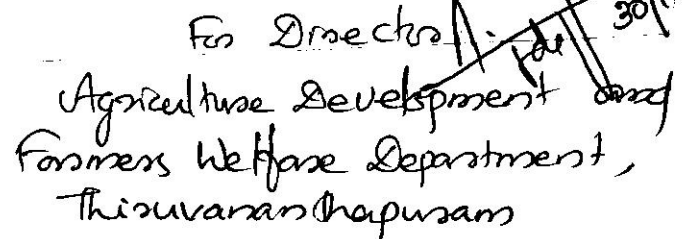 For Director
Agriculture Development and
Farmers Welfare Department,
Thiruvananthapuram